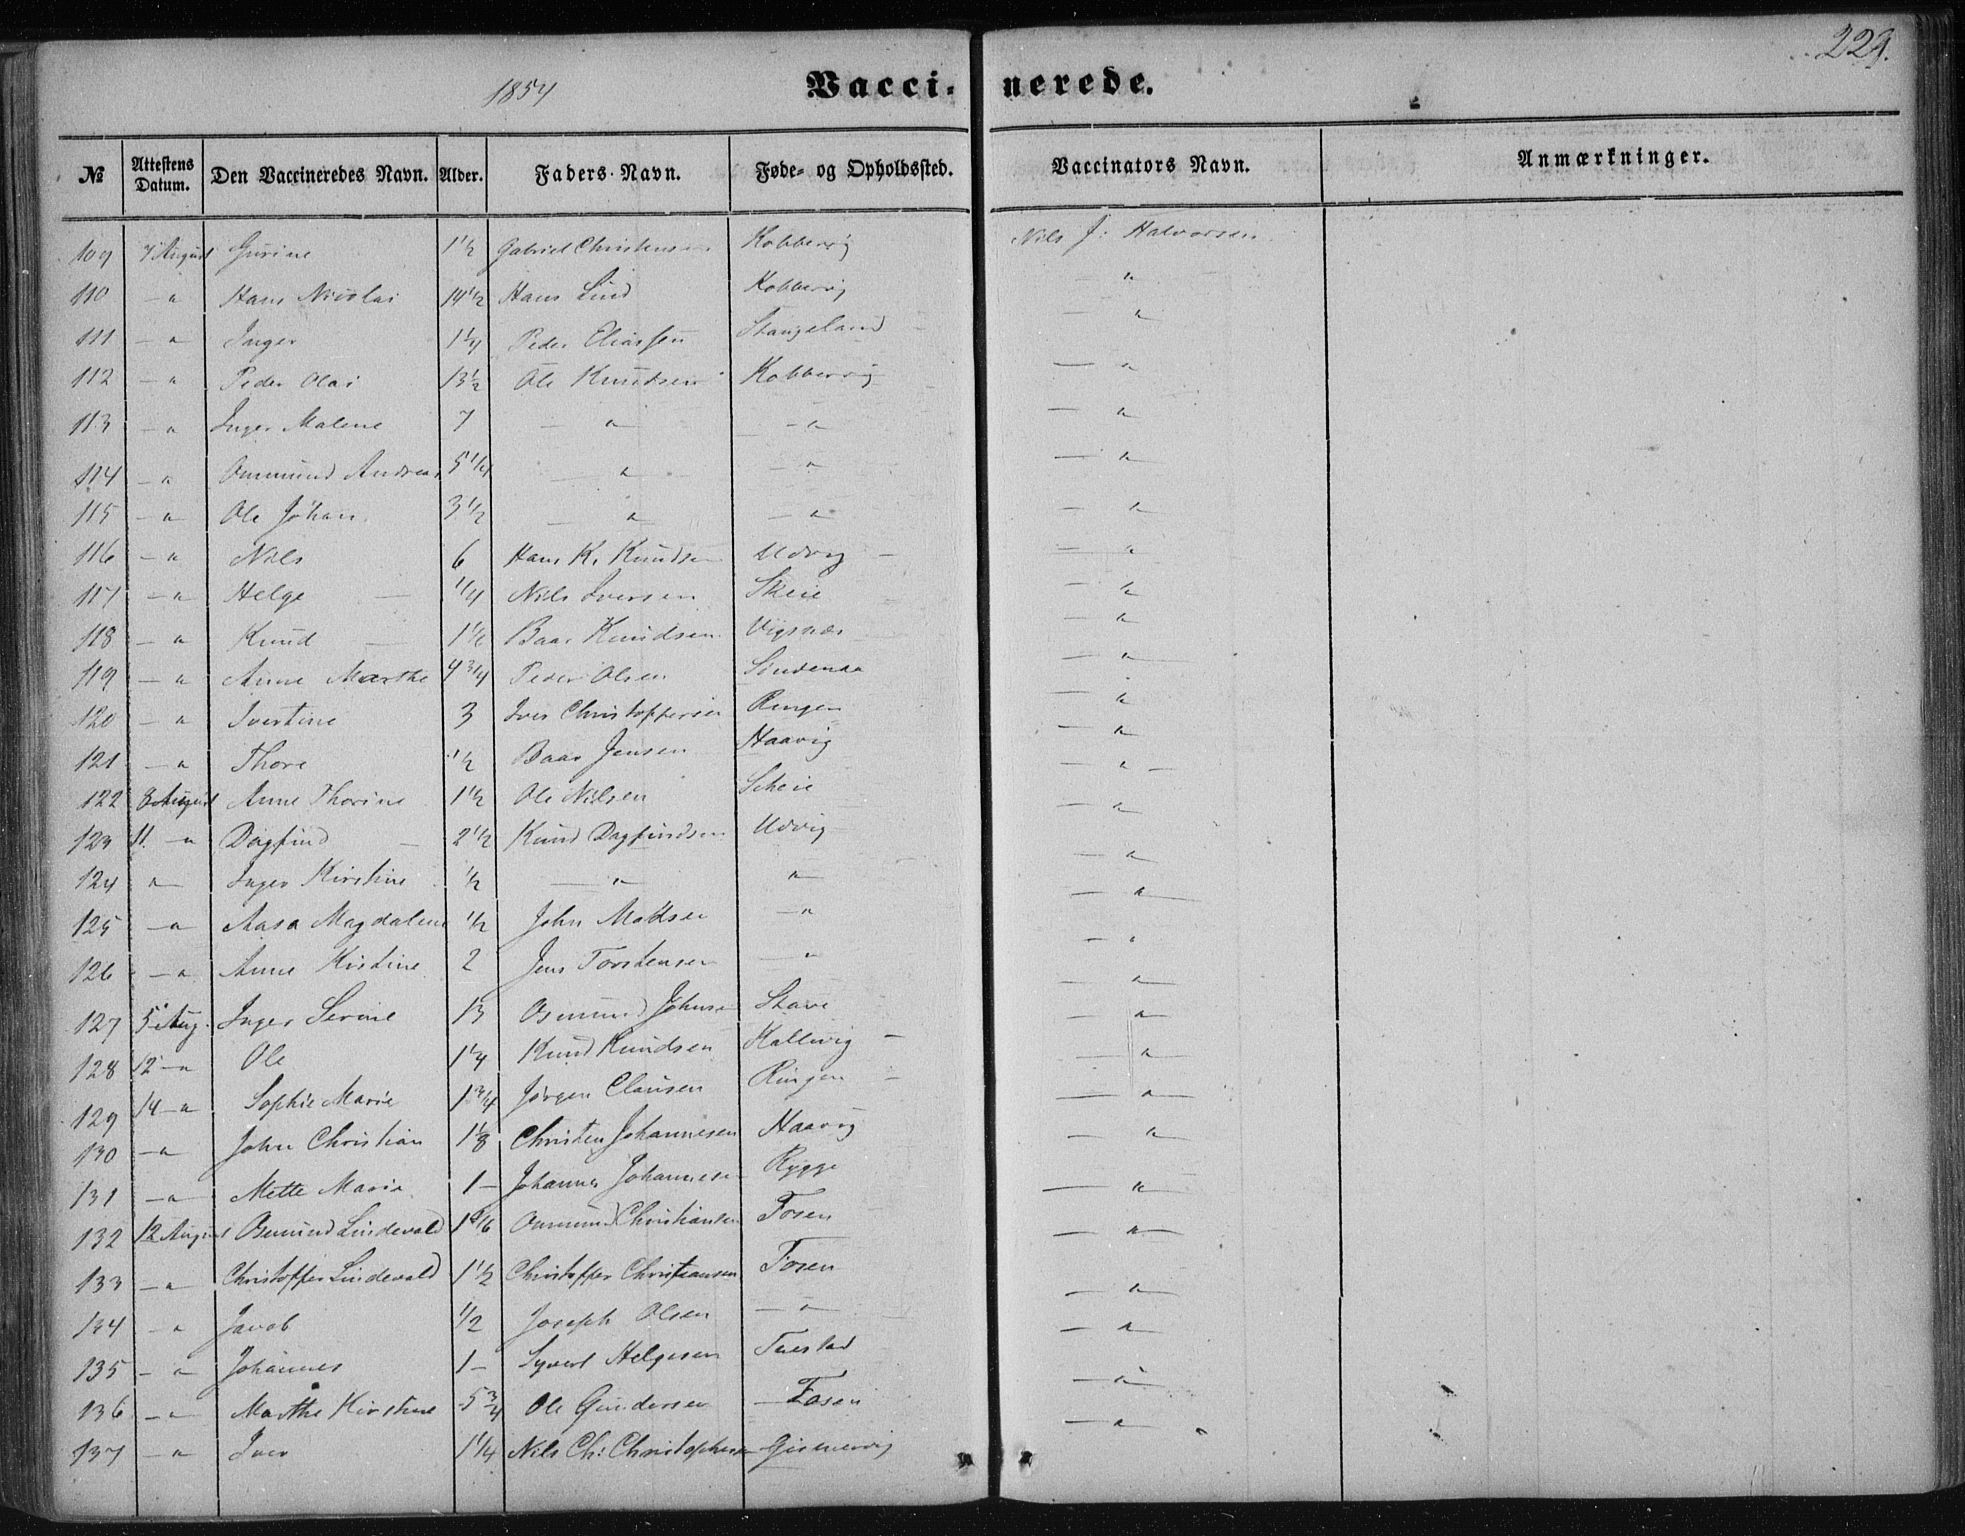 223.
1854 Vaccinerede.
№ Attestens Datum. Den Vaccineredes Navn. Alder. Faders-Navn. Føde- og Opholdssted. Vaccinators Navn. Anmærkninger.
109 7 August Gurine 1 1/2 Gabriel Christensen Kobbervig Nils J: Halvorsen
110 — " Hans Nicolai 14 1/2 Hans Lind Kobbervig — " —
111 — " Inger 1 1/4 Peder Eliassen Stangeland — " —
112 — " Peder Olai 13 1/2 Ole Knudsen Kobbervig — " —
113 — " Inger Malene 7 — " — — " — " —
114 — " Ommund Andreas 5 1/4 — " — — " — " —
115 — " Ole Johan 3 1/2 — " — — " — " —
116 — " Nils 6 Hans K. Knudsen Udvig — — " —
117 — " Helge — 1/4 Nils Iversen Skeie — " —
118 — " Knud — 1 1/2 Baar Knudsen Vigsnæs — " —
119 — " Anne Marthe 4 3/4 Peder Olsen — " —
120 — " Ivertine 3 Iver Christoffersen Ringen — " —
121 — " Thore 1/2 Baar Jensen Haavig — " —
122 8 August Anne Thorine 1 1/2 Ole Nilsen Scheie — " —
123 11. — " Dagfind — 2 1/2 Knud Dagfindsen Udvig — " —
124 " — Inger Kirstine 1/2 — " — " — — " —
125 — " Aasa Magdalene 1/2 John Matsen — " — " —
126 — " Anne Kirstine 2 Jens Torstensen — " — "
127 5 Aug. Inger Serine 13 Osmund Johnsen Stave — " —
128 12 — " Ole 1 1/4 Knud Knudsen Hallvig — — " —
129 14 — " Sophie Marie 1 3/4 Jørgen Clausen Ringen — — " —
130 — " John Christian 1 1/8 Christen Johannesen Haavig — " —
131 — " Mette Marie 1 — Johannes Johannesen Rygge — " —
132 12 August Osmund Lindevald 1 5/6 Ommund Christiansen Fosen — " —
133 — " Christoffer Lindevald 1 1/2 Christoffer Christiansen Fosen — " —
134 — " Jacob 1/2 Joseph Olsen — " — — " —
135 — " Johannes 1 — Syvert Helgesen Tuestad — " —
136 — " Marthe Kirstine 5 3/4 Ole Gundersen — Fosen — " —
137 — " Iver 1 1/4 Nils Ch: Christophersen Gismervig — " —